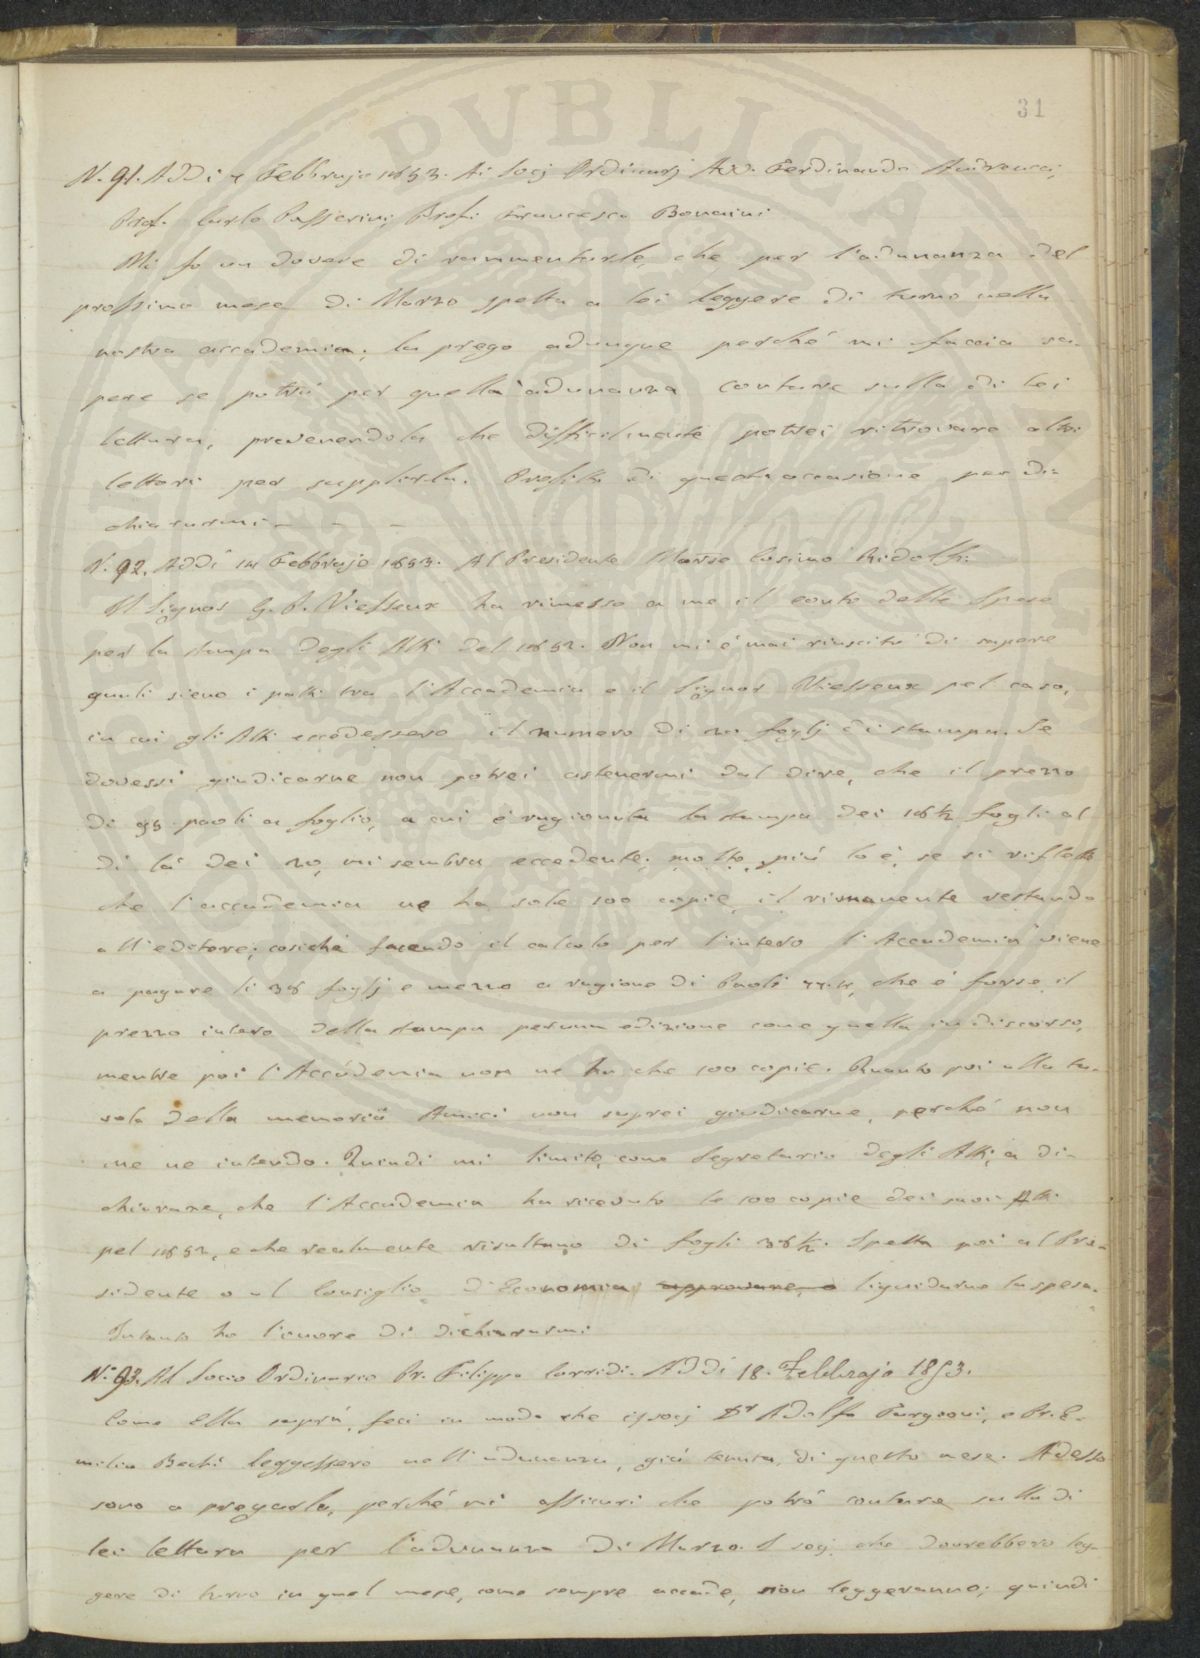 31
N. 91. Addì Febbrajo 1853. Ai Socj Ordinarj Avv. Ferdinando Andreucci,
Prof. Carlo Passerini, Prof. Francesco Bonaini
Mi fo un dovere di rammentarle, che per l'adunanza del
prossimo mese di Marzo spetta a lei leggere di turno nella
nostra accademia; la prego adunque perché mi faccia sa-
pere se potrò per quella adunanza contare sulla di lei
lettura, prevenendola che difficilmente potrei ritrovare altri
lettori per supplirla. Profitto di questa occasione per di-
chiararmi - - -
N. 92. Addì 14 Febbrajo 1853. Al Presidente March.se Cosimo Ridolfi.
Il Signor G. P. Viesseux ha rimesso a me il conto delle spese
per la stampa degli Atti del 1852. Non mi è mai riuscito di sapere
quali sieno i patti tra l'Accademia e il Signor Viesseux pel caso,
in cui gli Atti eccedessero il numero di 20 foglj di stampa. Se
dovessi giudicarne non potrei astenermi dal dire, che il prezzo
di 95 paoli a foglio, a cui è ragionata la stampa dei 18½ fogli al
di là dei 20, mi sembra eccedente; molto più lo è, se si rifletta
che l'accademia ne ha sole 100 copie, il rimanente restando
all'editore; cosiché facendo il calcolo per l'intero l'Accademia viene
a pagare li 38 foglj e mezzo a ragione di Paoli che è forse il
prezzo intero della stampa per una edizione come quella in discorso,
mentre poi l'Accademia non ne ha che 100 copie. Quanto poi alla ta-
vola della memoria Amici non saprei giudicarne, perché non
me ne intendo. Quindi mi limito, come Segretario degli Atti, a di-
chiarare, che l'Accademia ha ricevuto le 100 copie dei suoi Atti
pel 1852, e che realmente risultano di fogli 38½. Spetta poi al Pre-
sidente o al Consiglio d'Economia approvare, o liquidarne la spesa.
Intanto ho l'onore di dichiararmi
N. 93. Al Socio Ordinario Pr. Filippo Corridi. Addì 18. Febbrajo 1853.
Come Ella saprà, feci in modo che i socj Dr Adolfo Targioni, e Pr. E-
milio Bechi leggessero nell'adunanza, già tenuta, di questo mese. Adesso
sono a pregarla, perché mi assicuri che potrò contare sulla di
lei lettura per l'adunanza di Marzo. I socj che dovrebbero leg-
gere di turno in quel mese, come sempre accade, non leggeranno; quindi